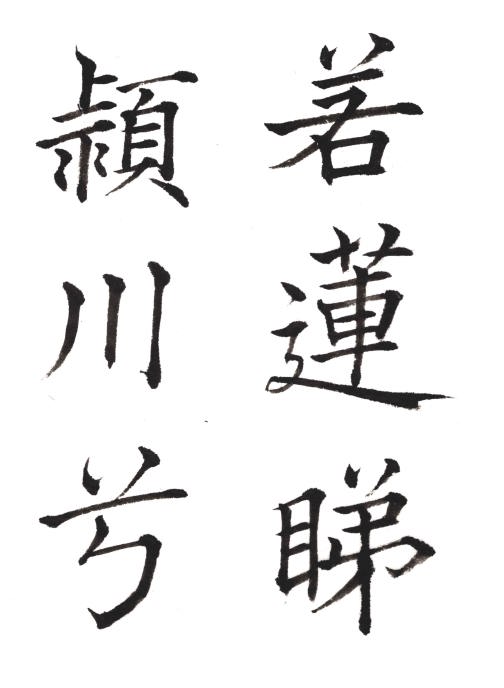 若蓮睇
潁川兮